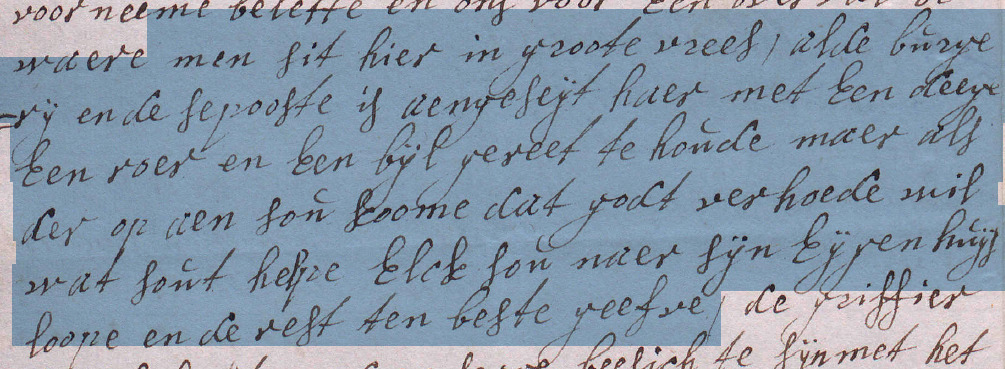 voorneeme belette en ons voor Een
waere men sit hier in groote vrees, alde burge
rÿ ende sepooste is aengeseÿt haer met Een deege
Een roer en Een bÿl gereet te houde maer als
der op aen sou koome dat godt verhoede wil
wat sout helpe Elck sou naer sÿn Eÿgen huÿs
loope en de rest ten beste geefve, de griffier
beesich te sÿn met het